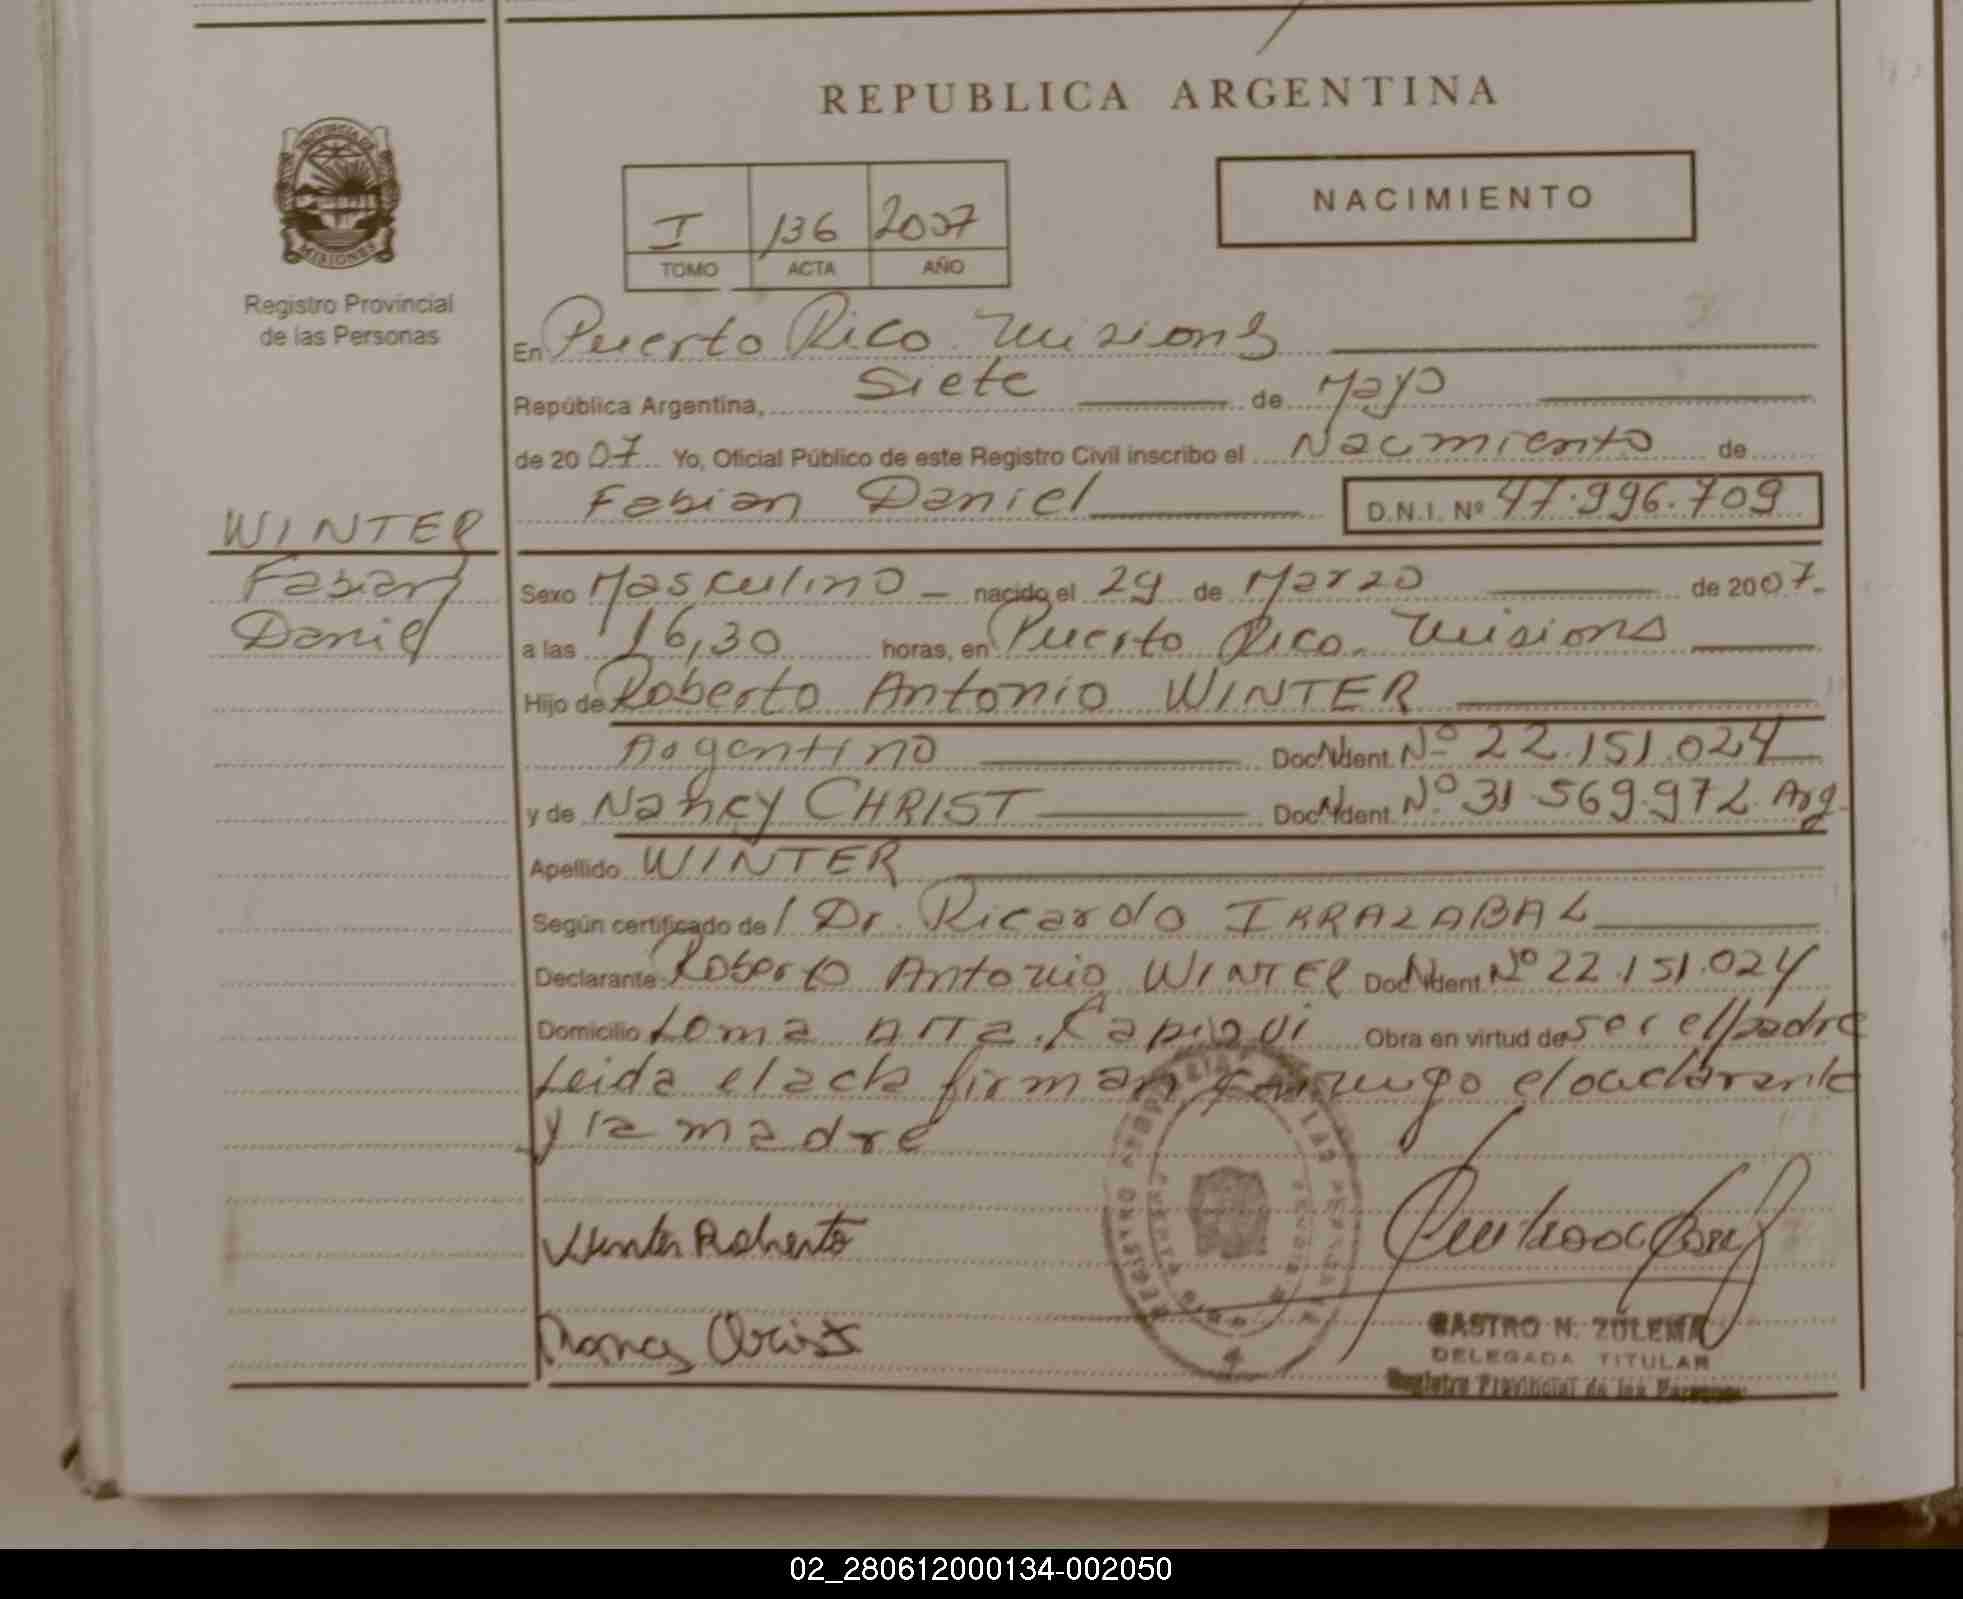 REPUBLICA ARGENTINA
PROVINCIA DE
MISIONES
Registro Provincial
de las Personas
NACIMIENTO
I 136 2007
TOMO ACTA AÑO
En Puerto Rico. Misiones
República Argentina, Siete de Mayo
de 2007 Yo, Oficial Público de este Registro Civil inscribo el Nacimiento de
Fabian Daniel D.N.I. Nº 47.996.709
WINTER
Fabian
Daniel
Sexo Masculino nacido el 29 de Marzo de 2007.
a las 16,30 horas, en Puerto Rico. Misiones
Hijo de Roberto Antonio WINTER
Argentino Doc. Ident. Nº 22.151.024
y de Nancy CHRIST Doc. Ident. Nº 31.569.972 Arg.
Apellido WINTER
Según certificado de / Dr. Ricardo IRRAZABAL
Declarante Roberto Antonio WINTER Doc. Ident. Nº 22.151.024
Domicilio Loma Alta. Capiovi Obra en virtud de ser el padre
Leida el acta firman conmigo el declarante
y la madre
Winter Roberto
Nancy Christ
CASTRO N. ZULEMA
DELEGADA TITULAR
Registro Provincial de las Personas
02_280612000134-002050